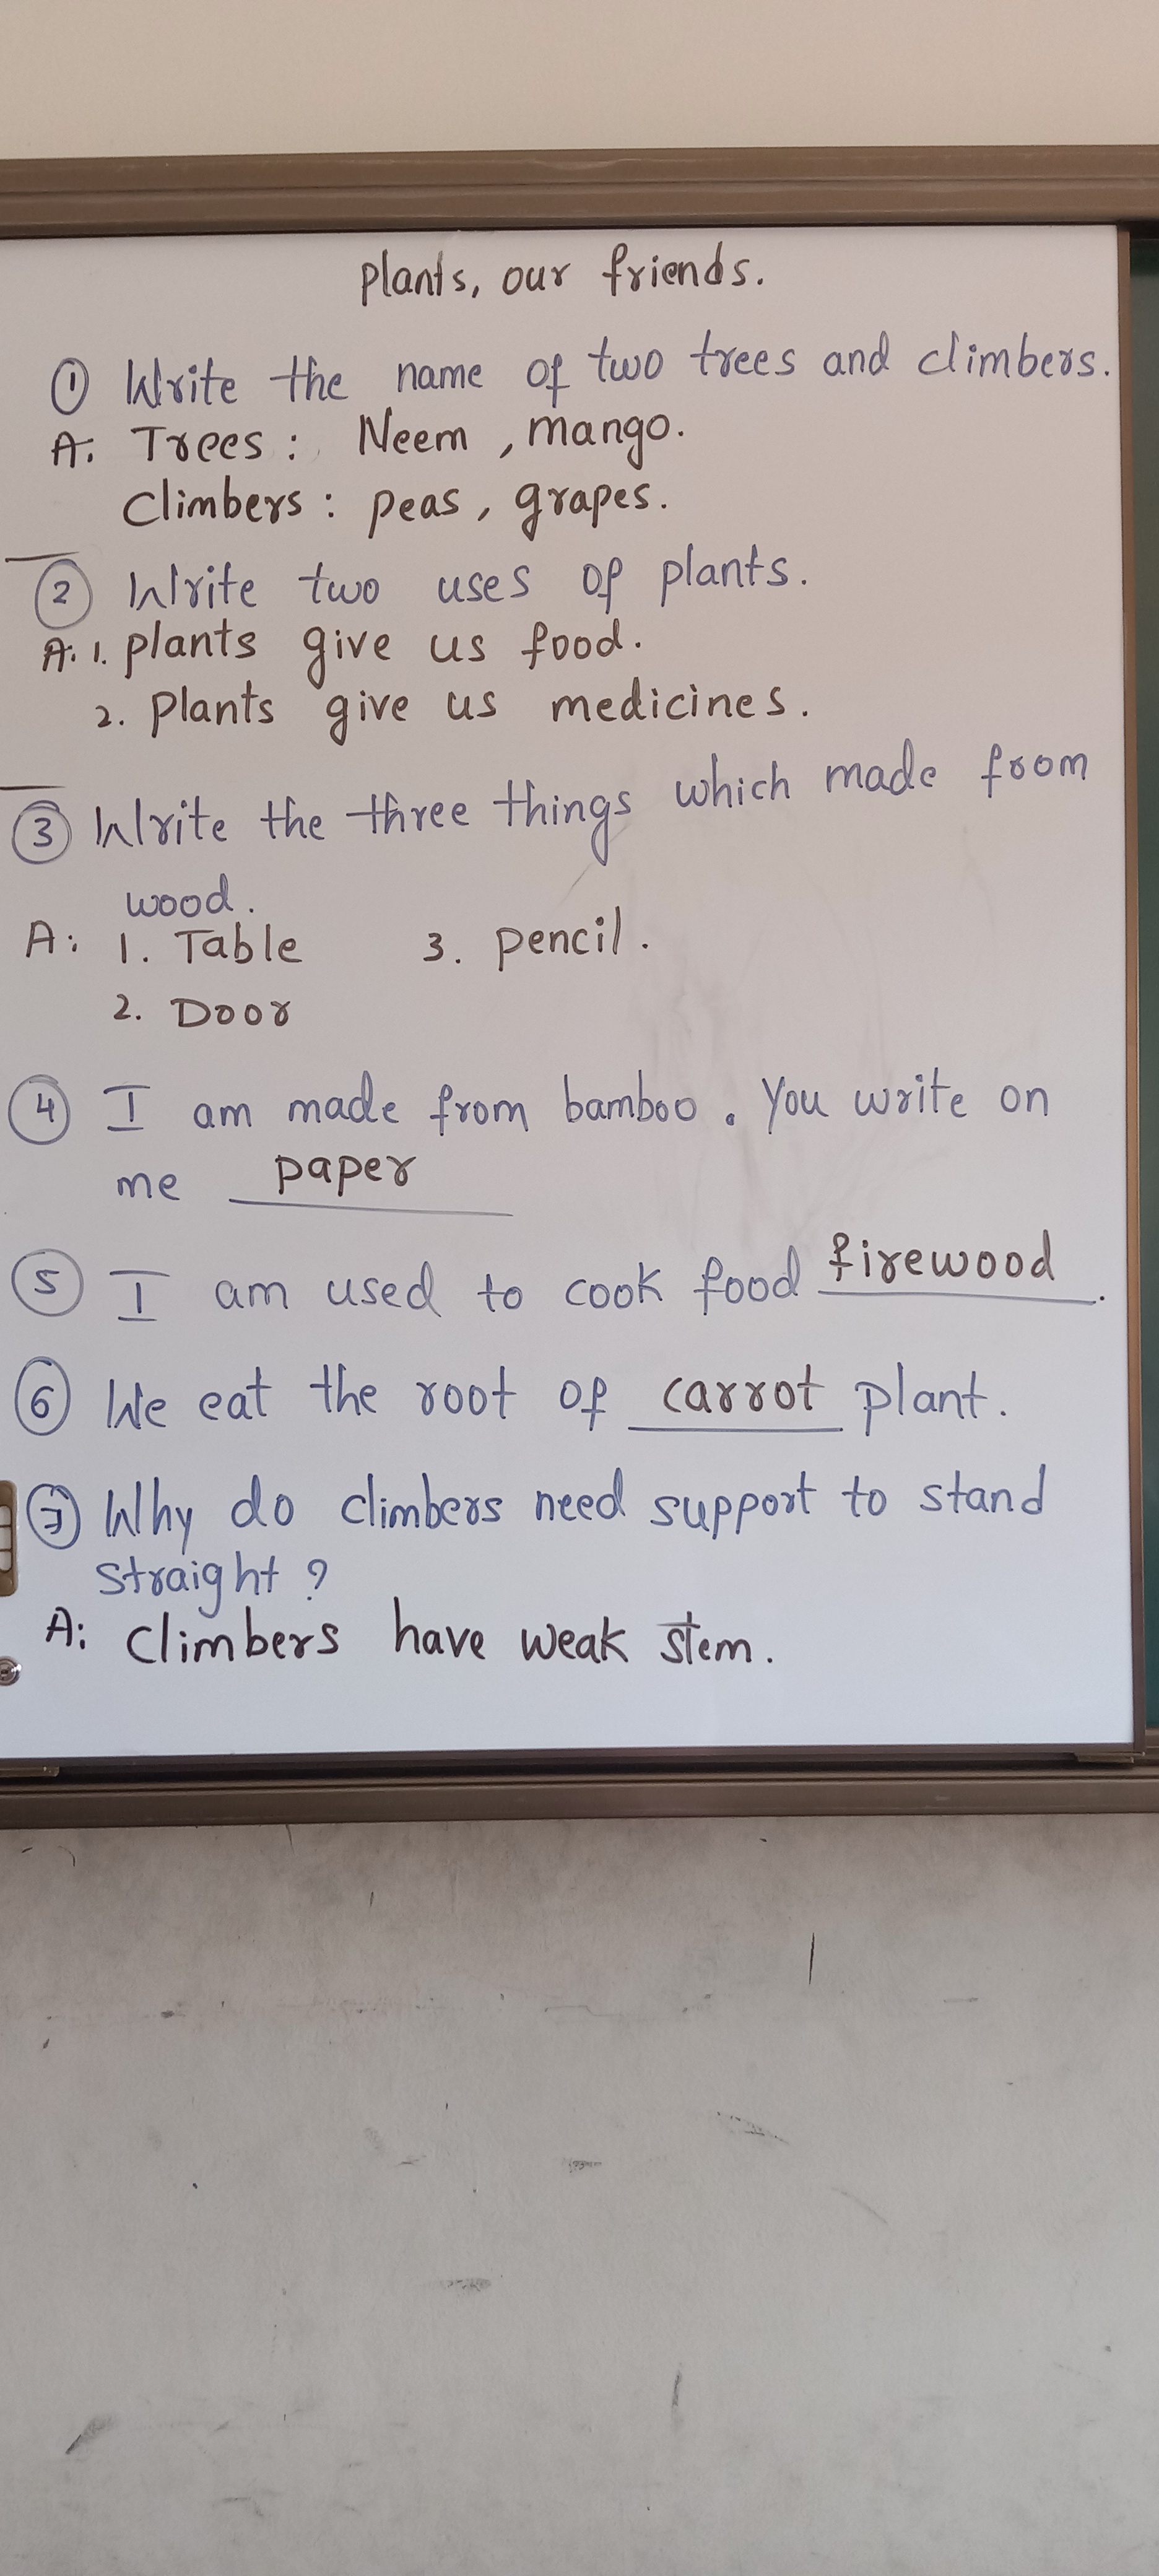 Plants, our friends.
① Write the name of two trees and climbers.
A: Trees : Neem , mango.
Climbers : peas , grapes.
② Write two uses of plants.
A: 1. plants give us food.
2. Plants give us medicines.
③ Write the three things which made from
wood.
A: 1. Table 3. pencil.
2. Door
④ I am made from bamboo. You write on
me paper
⑤ I am used to cook food firewood.
⑥ We eat the root of carrot plant.
⑦ Why do climbers need support to stand
straight ?
A: Climbers have weak stem.